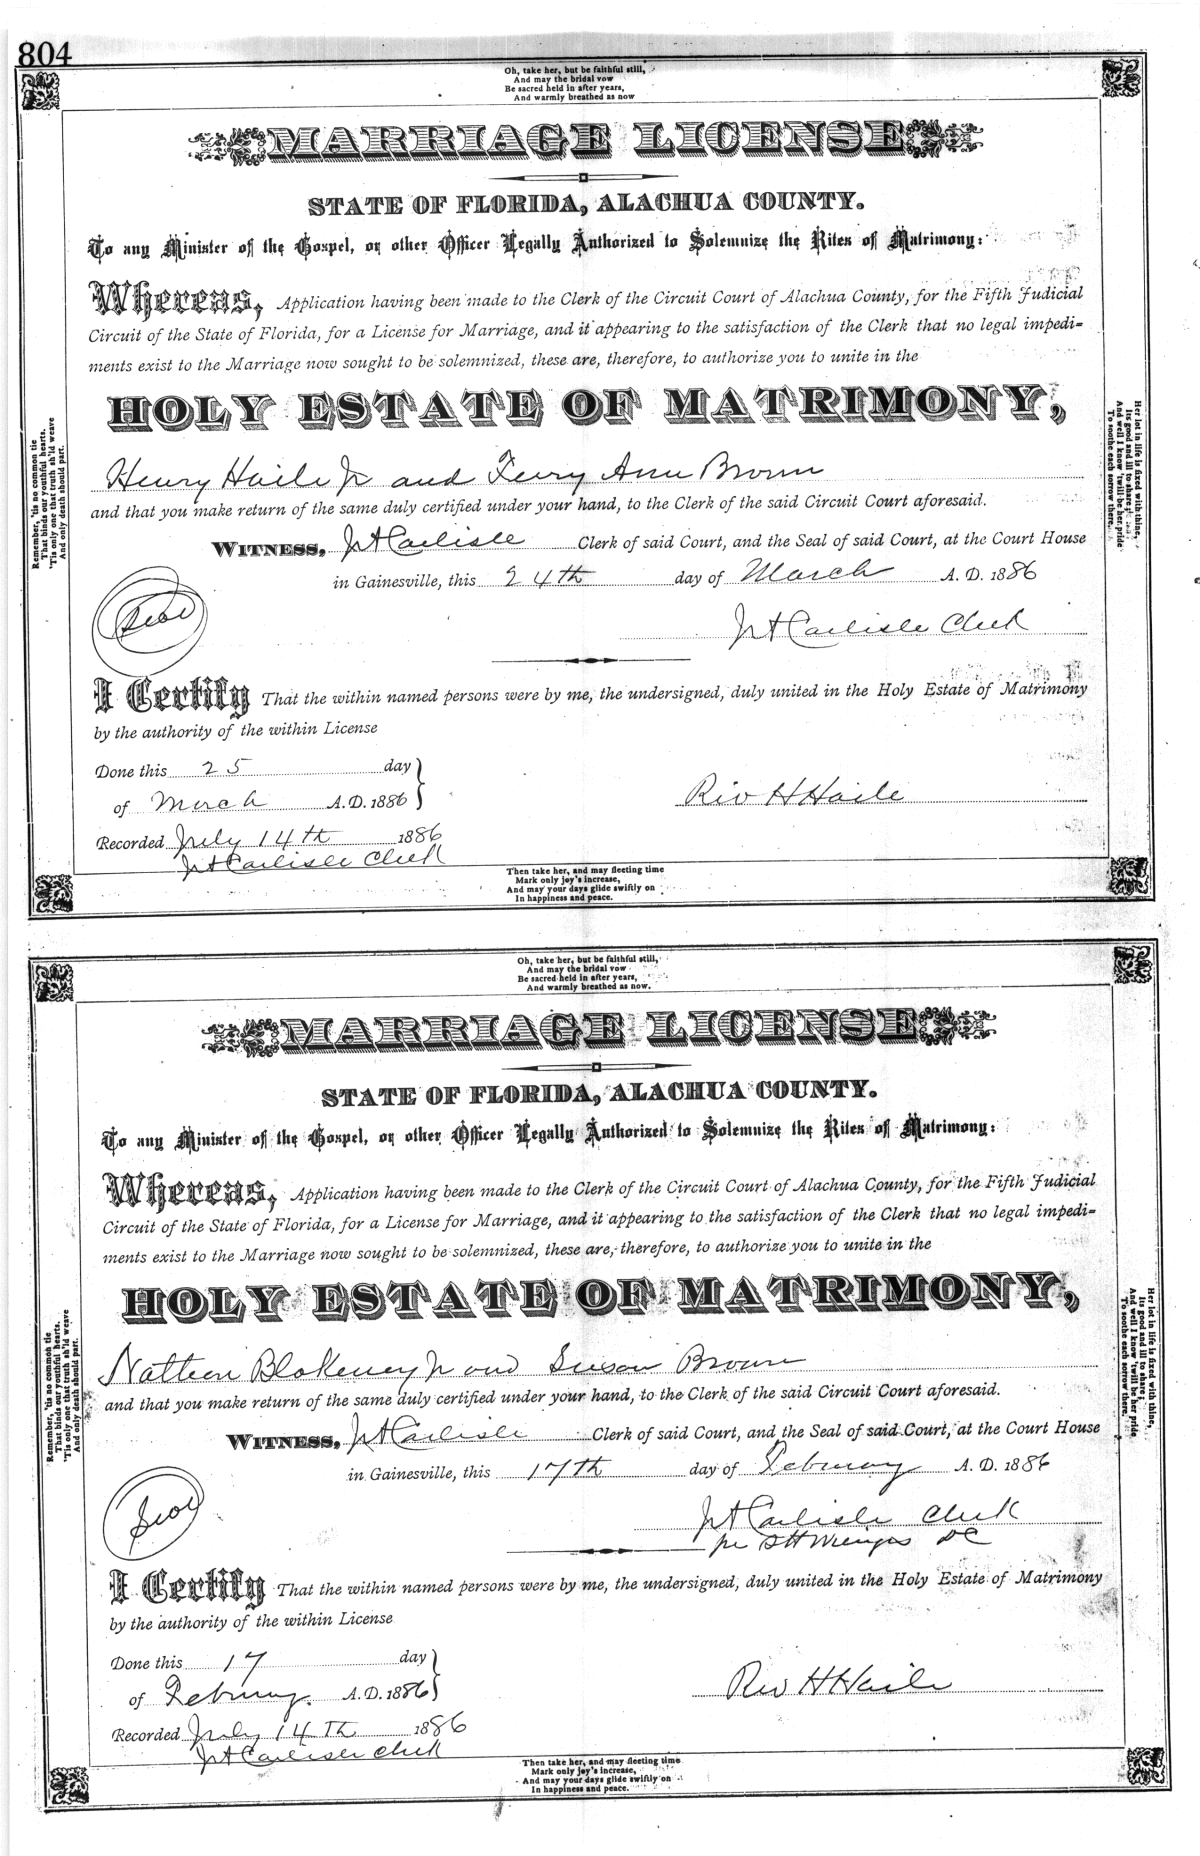 804
Oh, take her, but be faithful still,
And may the bridal vow
Be sacred held in after years,
And warmly breathed as now
MARRIAGE LICENSE
STATE OF FLORIDA, ALACHUA COUNTY.
To any Minister of the Gospel, or other Officer Legally Authorized to Solemnize the Rites of Matrimony:
Whereas, Application having been made to the Clerk of the Circuit Court of Alachua County, for the Fifth Judicial
Circuit of the State of Florida, for a License for Marriage, and it appearing to the satisfaction of the Clerk that no legal impedi=
ments exist to the Marriage now sought to be solemnized, these are, therefore, to authorize you to unite in the
HOLY ESTATE OF MATRIMONY,
Henry Haile Jr and Ann Brown
and that you make return of the same duly certified under your hand, to the Clerk of the said Circuit Court aforesaid.
WITNESS, Carlisle Clerk of said Court, and the Seal of said Court, at the Court House
in Gainesville, this 24th day of March A. D. 1886
Seal
Carlisle Clerk
I Certify That the within named persons were by me, the undersigned, duly united in the Holy Estate of Matrimony
by the authority of the within License
Done this 25 day
of March A.D. 1886
Rev H Haile
Recorded July 14th 1886
Carlisle Clerk
Then take her, and may fleeting time
Mark only joy's increase,
And may your days glide swiftly on
In happiness and peace.
Remember, 'tis no common tie
That binds our youthful hearts.
'Tis only one that truth sh'ld weave
And only death should part.
Her lot in life is fixed with thine,
Its good and ill to share;
And well I know 'twill be her pride
To soothe each sorrow there.
Oh, take her, but be faithful still,
And may the bridal vow
Be sacred held in after years,
And warmly breathed as now.
MARRIAGE LICENSE
STATE OF FLORIDA, ALACHUA COUNTY.
To any Minister of the Gospel, or other Officer Legally Authorized to Solemnize the Rites of Matrimony:
Whereas, Application having been made to the Clerk of the Circuit Court of Alachua County, for the Fifth Judicial
Circuit of the State of Florida, for a License for Marriage, and it appearing to the satisfaction of the Clerk that no legal impedi=
ments exist to the Marriage now sought to be solemnized, these are, therefore, to authorize you to unite in the
HOLY ESTATE OF MATRIMONY,
Blakeney Jr and Susan Brown
and that you make return of the same duly certified under your hand, to the Clerk of the said Circuit Court aforesaid.
WITNESS, Carlisle Clerk of said Court, and the Seal of said Court, at the Court House
in Gainesville, this 17th day of February A. D. 1886
Seal
Carlisle Clerk
per DC
I Certify That the within named persons were by me, the undersigned, duly united in the Holy Estate of Matrimony
by the authority of the within License
Done this 17 day
of February. A.D. 1886
Rev H Haile
Recorded July 14th 1886
Carlisle Clerk
Then take her, and may fleeting time
Mark only joy's increase,
And may your days glide swiftly on
In happiness and peace.
Remember, 'tis no common tie
That binds our youthful hearts.
'Tis only one that truth sh'ld weave
And only death should part.
Her lot in life is fixed with thine,
Its good and ill to share;
And well I know 'twill be her pride
To soothe each sorrow there.